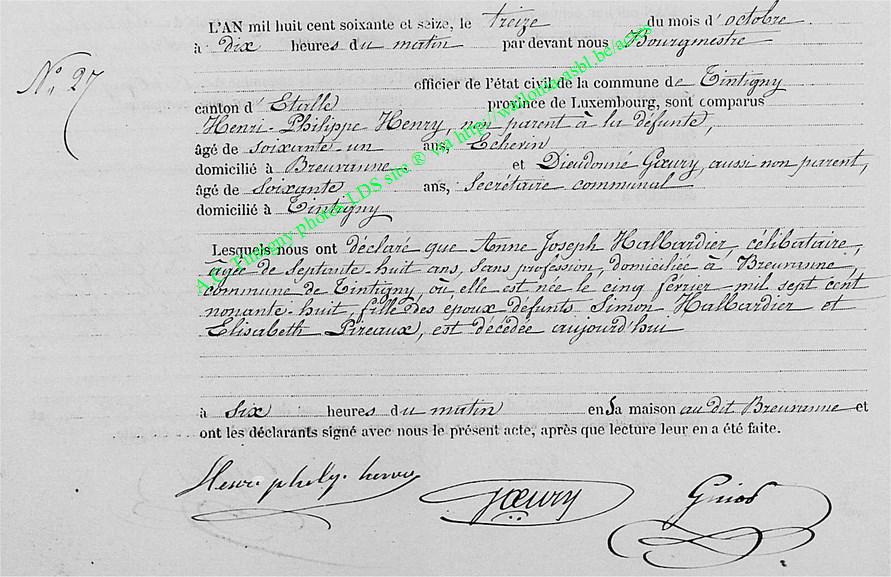 L'AN mil huit cent soixante et seize, le treize du mois d'octobre
à dix heures du matin par devant nous Bourgmestre
N° 27
officier de l'état civil de la commune de Tintigny
canton d'Etalle province de Luxembourg, sont comparus
Henri-Philippe Henry, non parent à la défunte,
âgé de soixante un ans, Echevin
domicilié à Breuvanne et Dieudonné Goeury, aussi non parent,
âgé de soixante ans, secrétaire communal
domicilié à Tintigny
Lesquels nous ont déclaré que Anne Joseph Halbardier, célibataire,
âgée de septante-huit ans, sans profession, domiciliée à Breuvanne,
commune de Tintigny, où elle est née le cinq février mil sept cent
nonante-huit, fille des époux défunts Simon Halbardier et
Elisabeth Pireaux, est décédée aujourd'hui
à six heures du matin en sa maison au dit Breuvanne et
ont les déclarants signé avec nous le présent acte, après que lecture leur en a été faite.
Henri
Goeury
A.C. Tintigny photos LDS site ® via http://wallonia-asbl.be/actes